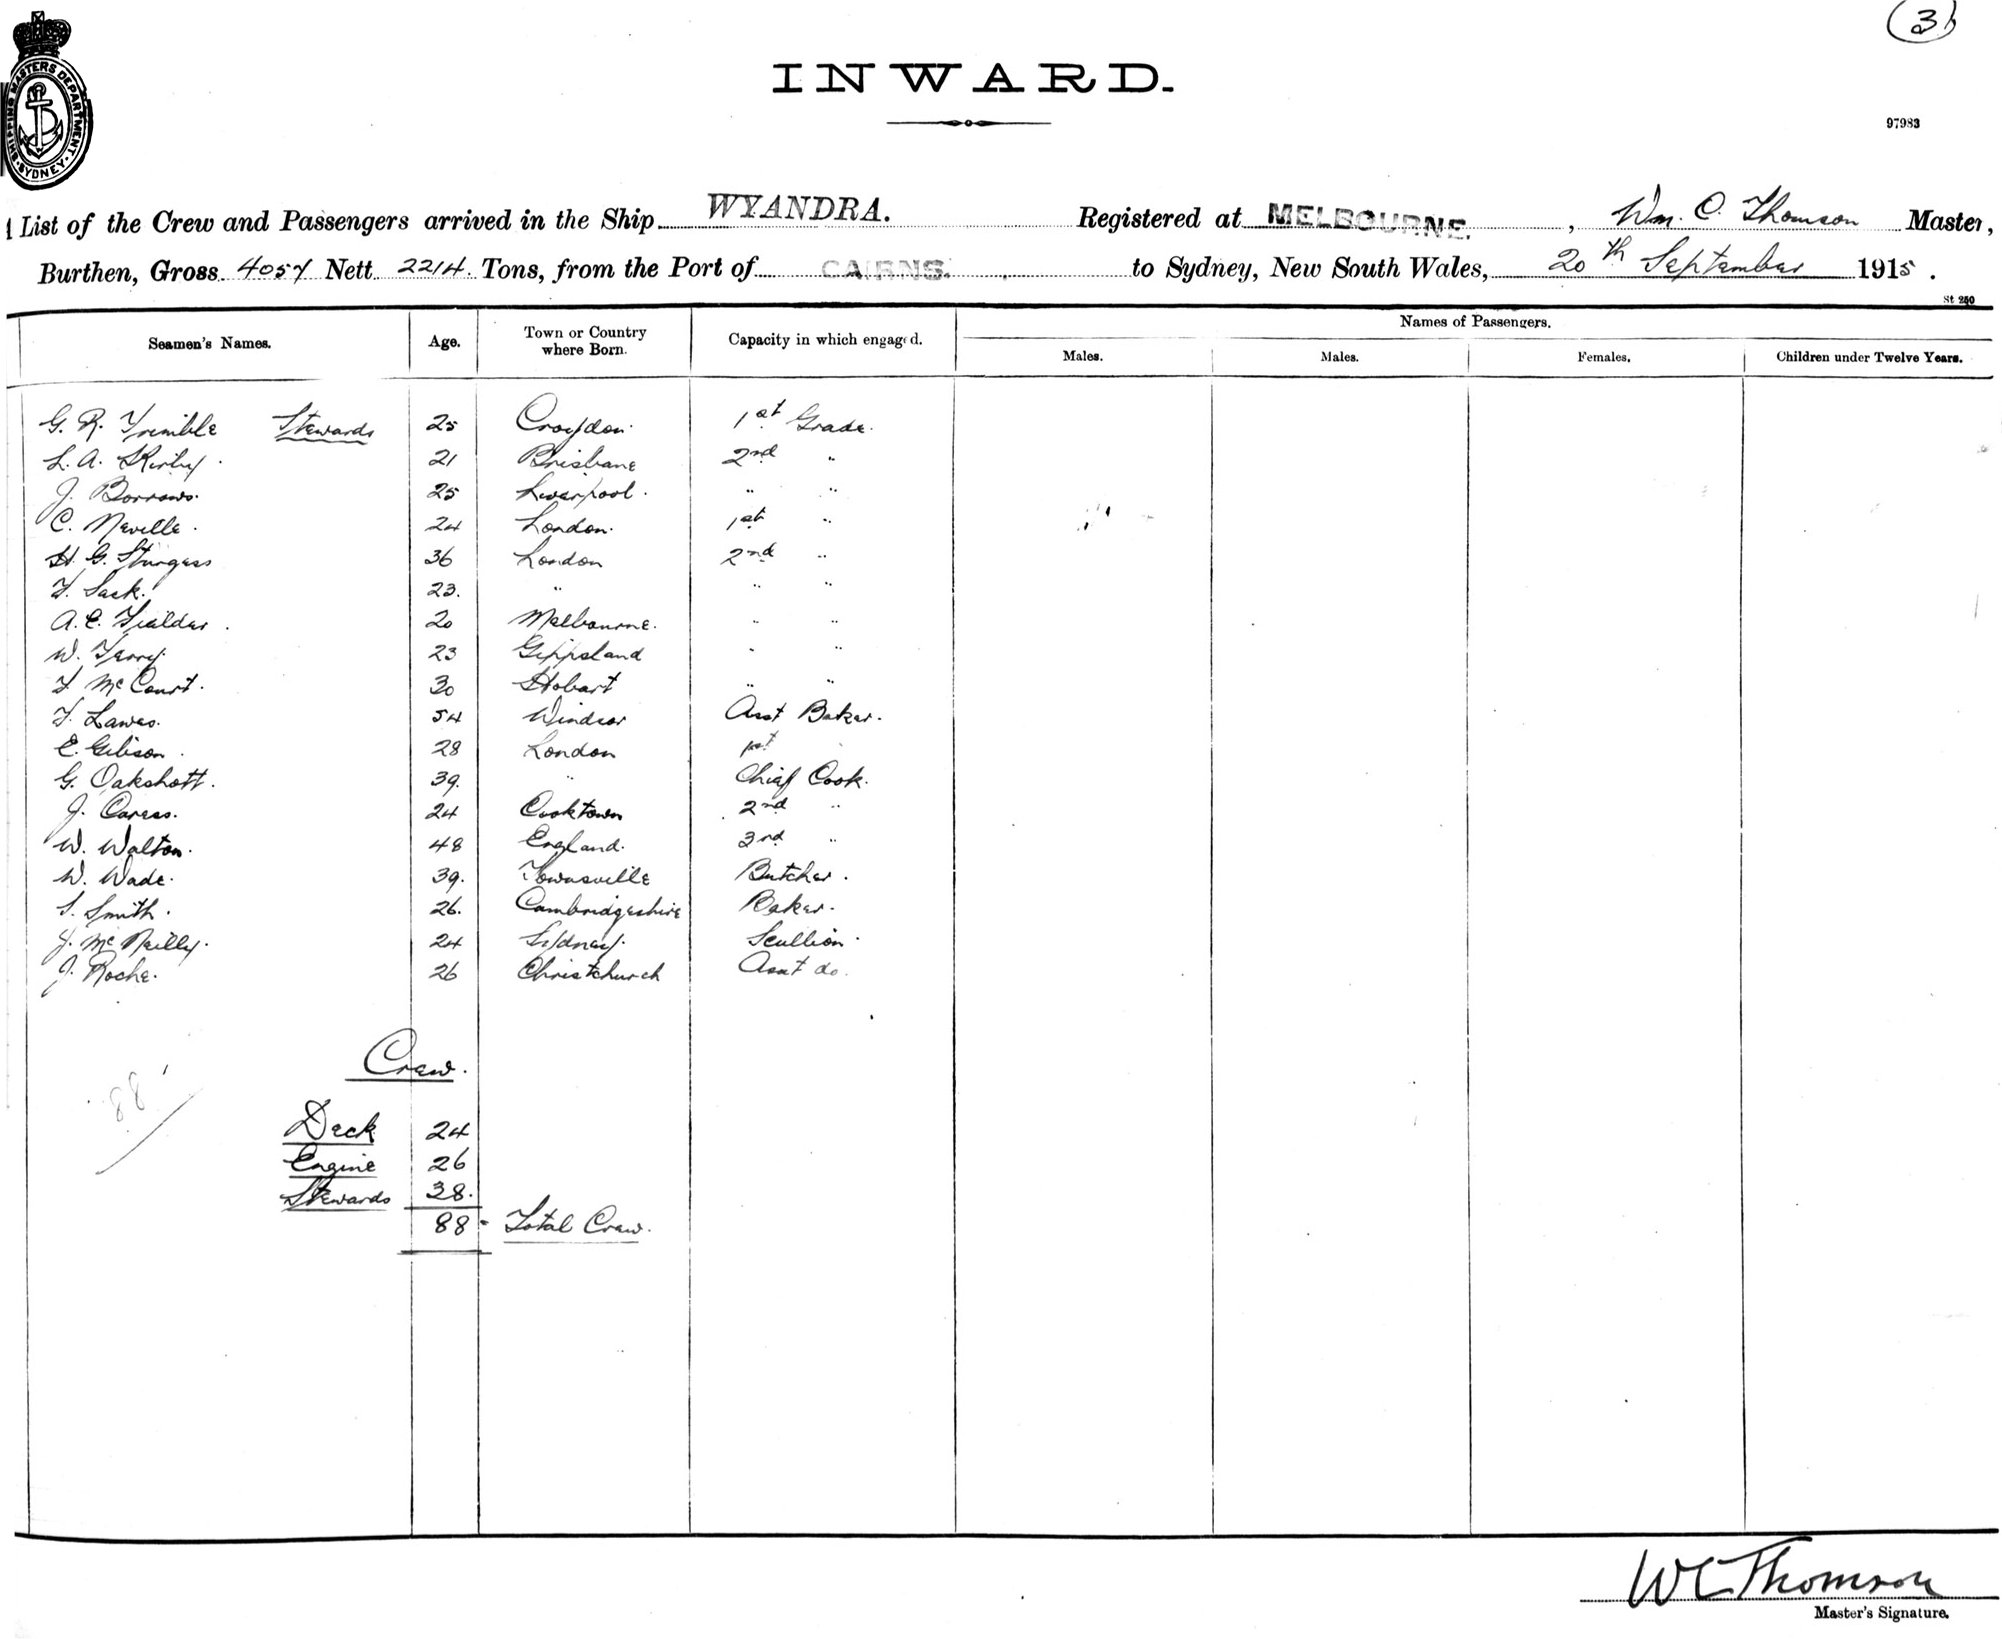 3
INWARD.
97983
SHIPPING MASTERS DEPARTMENT SYDNEY
List of the Crew and Passengers arrived in the Ship WYANDRA. Registered at MELBOURNE. , Wm. C. Thomson Master,
Burthen, Gross 4057 Nett 2214 Tons, from the Port of CAIRNS. to Sydney, New South Wales, 20th September 1915.
St 250
Seamen's Names. Age. Town or Country where Born. Capacity in which engaged. Names of Passengers.
Males. Males. Females. Children under Twelve Years.
G. R. Trimble Stewards 25 Croydon. 1st Grade.
L. A. Kirby. 21 Brisbane 2nd "
J. Borrows. 25 Liverpool. " "
C. Neville. 24 London. 1st "
H. G. Sturgess 36 London 2nd "
F. Sack. 23. " " "
A. E. Fielder. 20 Melbourne. " "
W. Terry. 23 Gippsland " "
F McCourt. 30 Hobart " "
F. Lawes. 54 Windsor Asst Baker.
E. Gibson. 28 London 1st
G. Oakshott. 39. " Chief Cook.
J. Caress. 24 Cooktown 2nd "
W. Walton. 48 England. 3rd "
W. Wade. 39. Townsville Butcher.
S. Smith. 26. Cambridgeshire Baker.
J. McNeilly. 24 Sydney. Scullion.
J. Roche. 26 Christchurch Asst do.
Crew.
88
Deck 24
Engine 26
Stewards 38.
88 - Total Crew.
W C Thomson
Master's Signature.